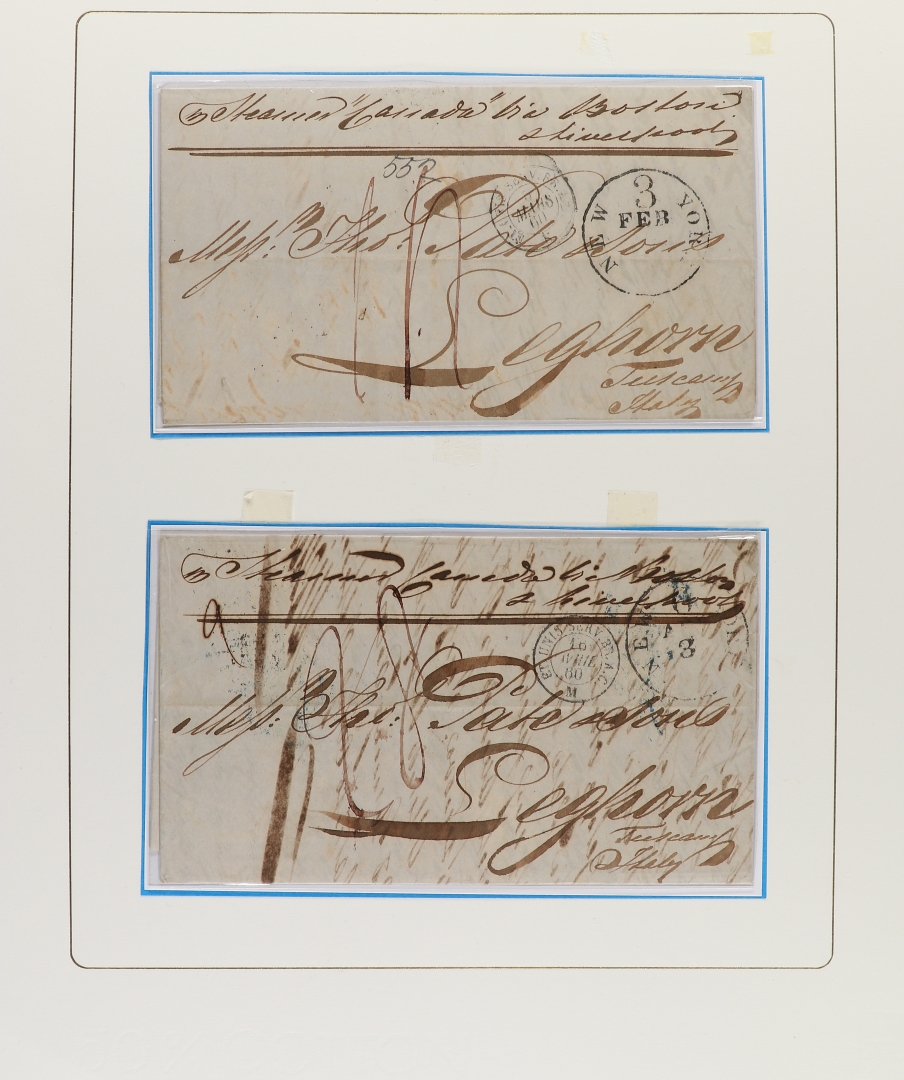 p Steamer "Canada" via Boston
& Liverpool
552
3
FEB
NEW YORK
MARS
60
Messrs. Thos. Pate & Sons
Leghorn
Tuscany
Italy
p Steamer Canada via Boston
& Liverpool
ET. UNIS SERV. BR. A.C.
16
AVRIL
60
M
3
Messrs. Thos. Pate & Sons
Leghorn
Tuscany
Italy